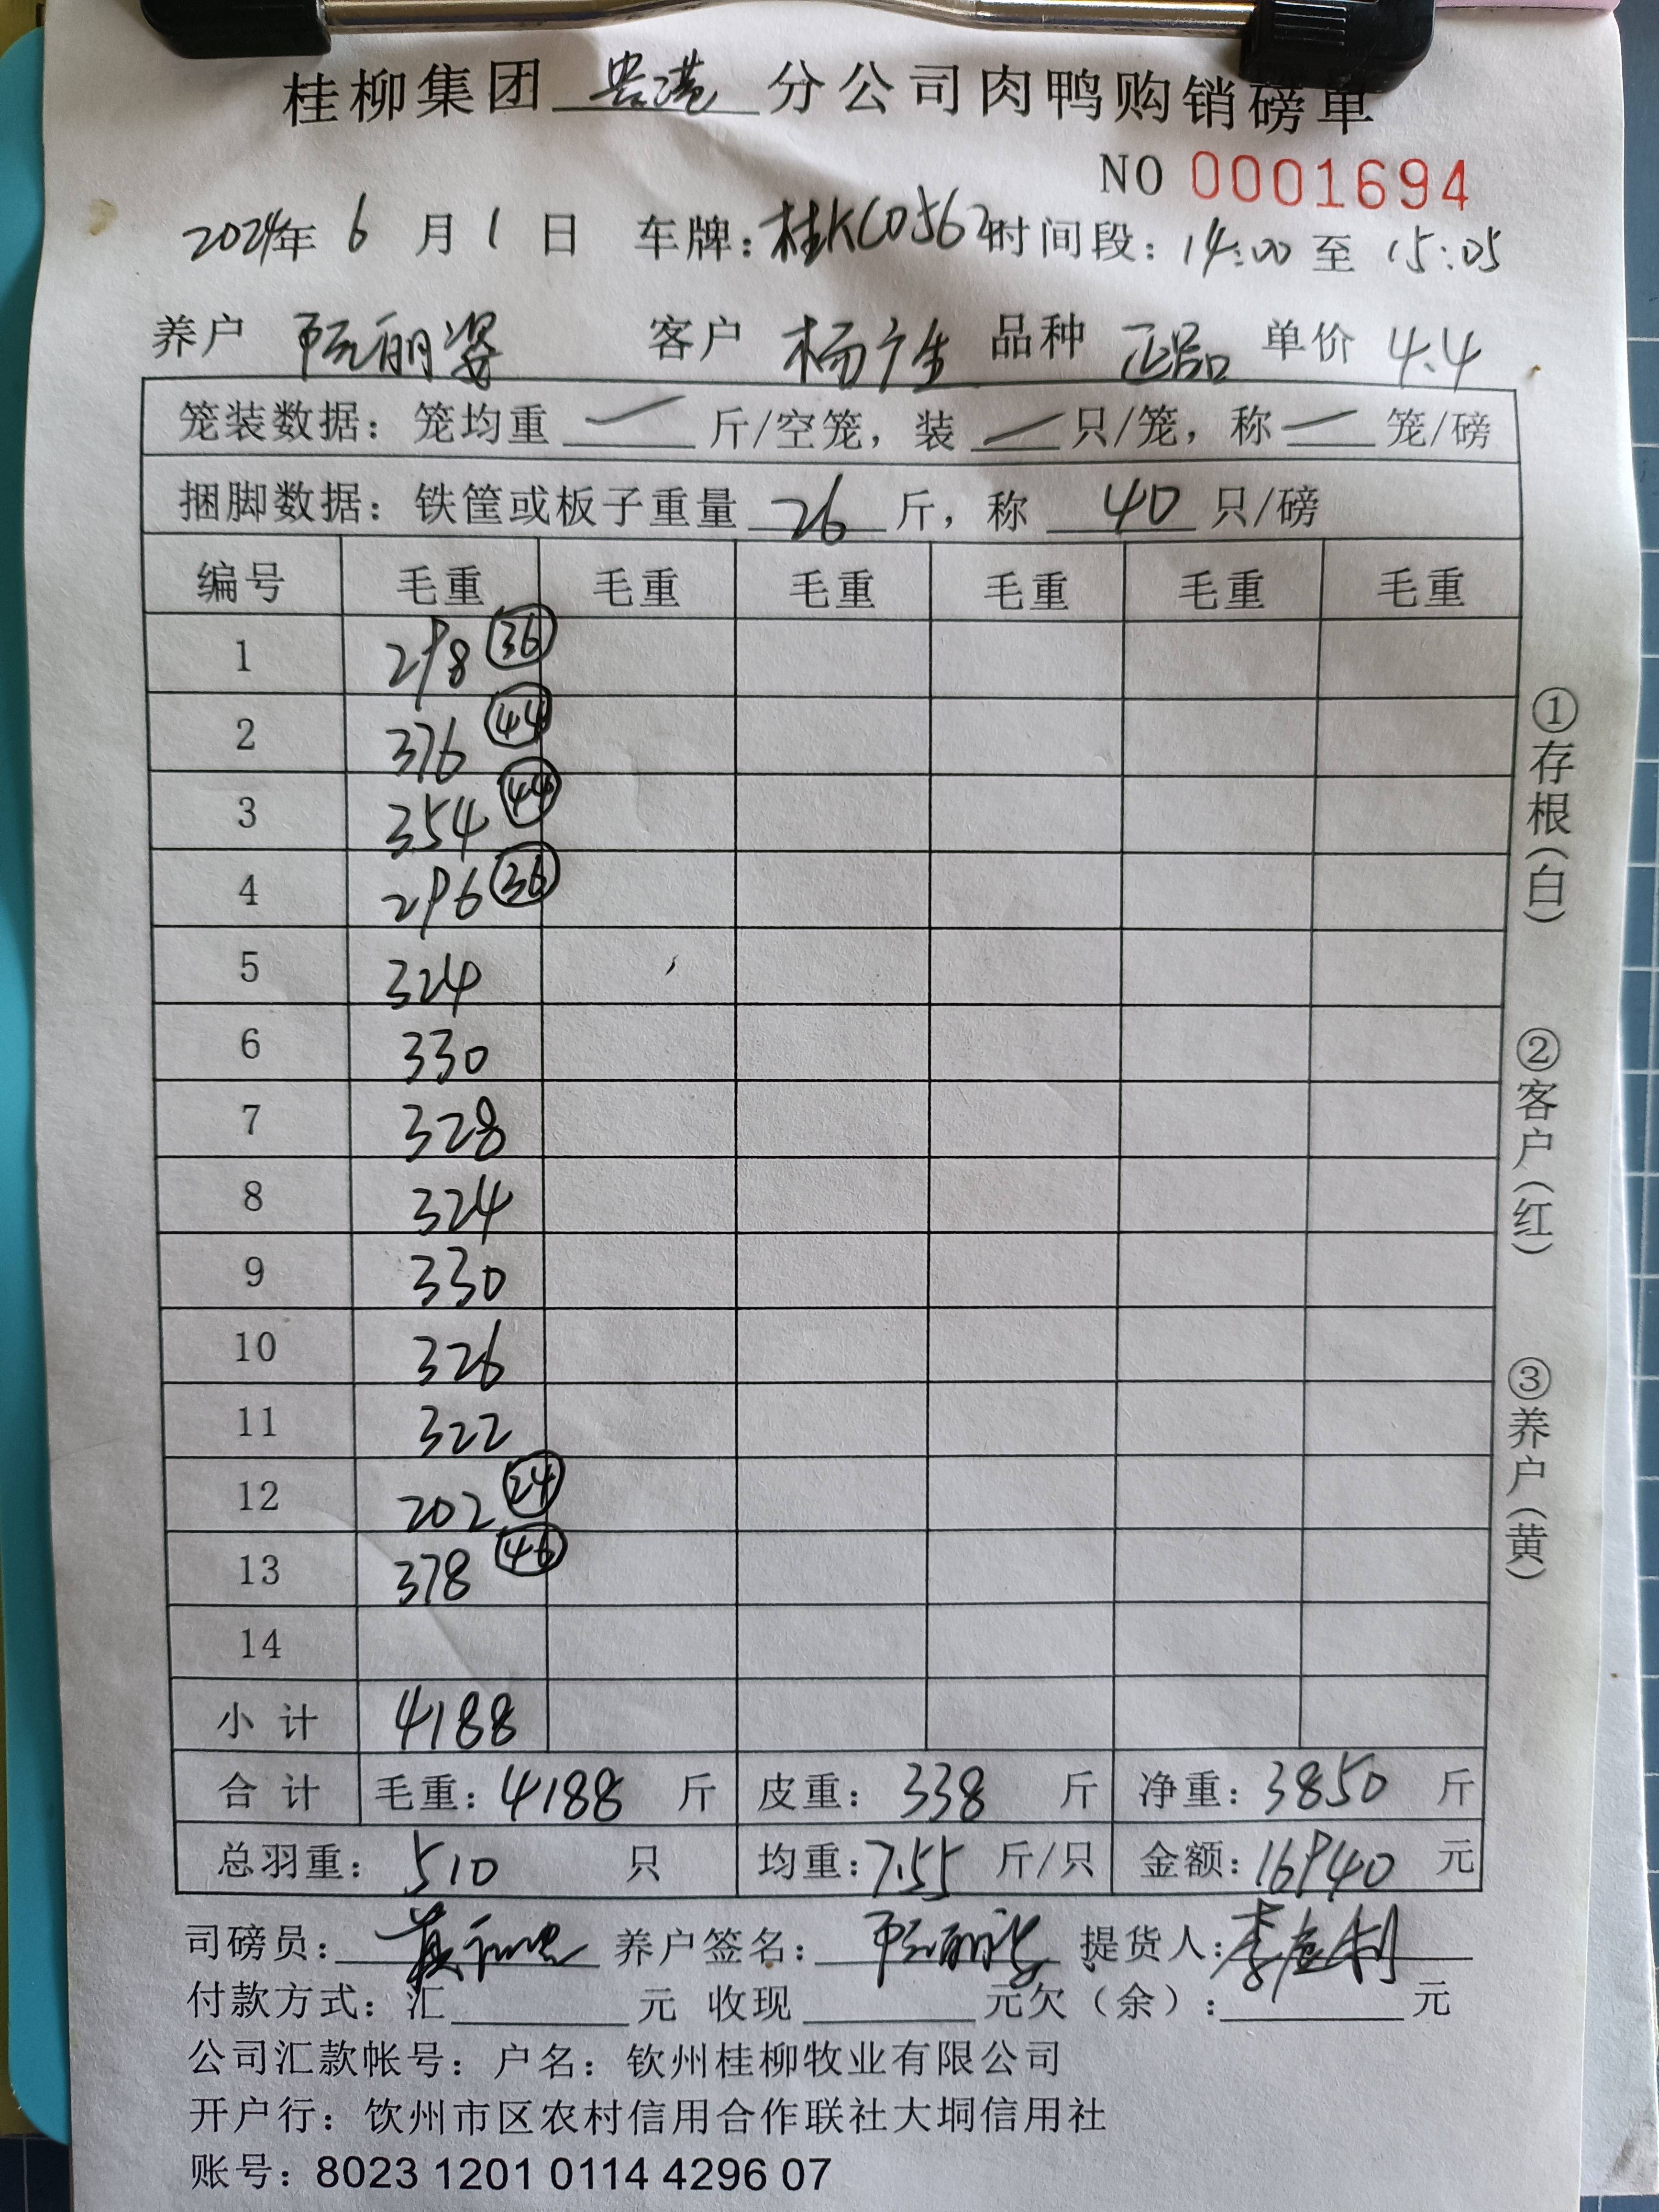 桂柳集团 贵港 分公司肉鸭购销磅单
NO 0001694
2024年 6 月 1 日 车牌：桂KC0562 时间段：14:00 至 15:05
养户 阮丽姿 客户 杨广生 品种 正品 单价 4.4
笼装数据：笼均重 / 斤/空笼，装 / 只/笼，称 / 笼/磅
捆脚数据：铁筐或板子重量 26 斤，称 40 只/磅
编号 毛重 毛重 毛重 毛重 毛重 毛重
1 298 36
2 376 44
3 354 44
4 296 36
5 324
6 330
7 328
8 324
9 330
10 326
11 322
12 202 24
13 378 46
14
小计 4188
合计 毛重：4188 斤 皮重：338 斤 净重：3850 斤
总羽重：510 只 均重：7.55 斤/只 金额：16940 元
司磅员： 养户签名：阮丽姿 提货人：
付款方式：汇 元 收现 元欠（余）： 元
公司汇款帐号：户名：钦州桂柳牧业有限公司
开户行：钦州市区农村信用合作联社大垌信用社
账号：8023 1201 0114 4296 07
①存根（白）
②客户（红）
③养户（黄）